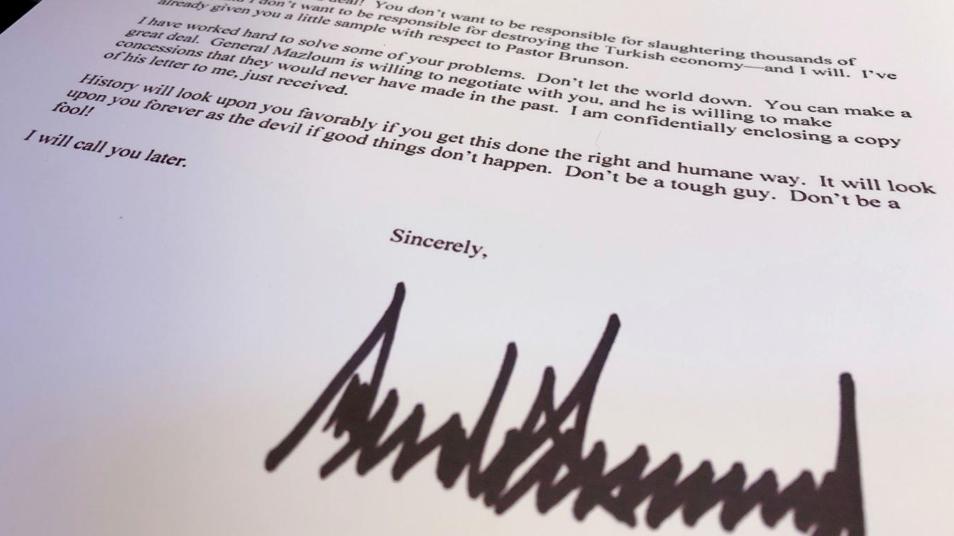 deal! You don't want to be responsible for slaughtering thousands of
don't want to be responsible for destroying the Turkish economy—and I will. I've
already given you a little sample with respect to Pastor Brunson.
I have worked hard to solve some of your problems. Don't let the world down. You can make a
great deal. General Mazloum is willing to negotiate with you, and he is willing to make
concessions that they would never have made in the past. I am confidentially enclosing a copy
of his letter to me, just received.
History will look upon you favorably if you get this done the right and humane way. It will look
upon you forever as the devil if good things don't happen. Don't be a tough guy. Don't be a
fool!
I will call you later.
Sincerely,